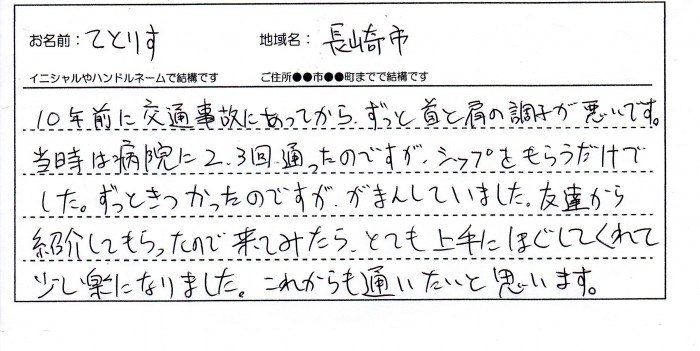 お名前：てとりす 地域名：長崎市
イニシャルやハンドルネームで結構です ご住所●●市●●町までで結構です
10年前に交通事故にあってから、ずっと首と肩の調子が悪いです。
当時は病院に2、3回通ったのですが、シップをもらうだけで
した。ずっときつかったのですが、がまんしていました。友達から
紹介してもらったので来てみたら、とても上手にほぐしてくれて
少し楽になりました。これからも通いたいと思います。